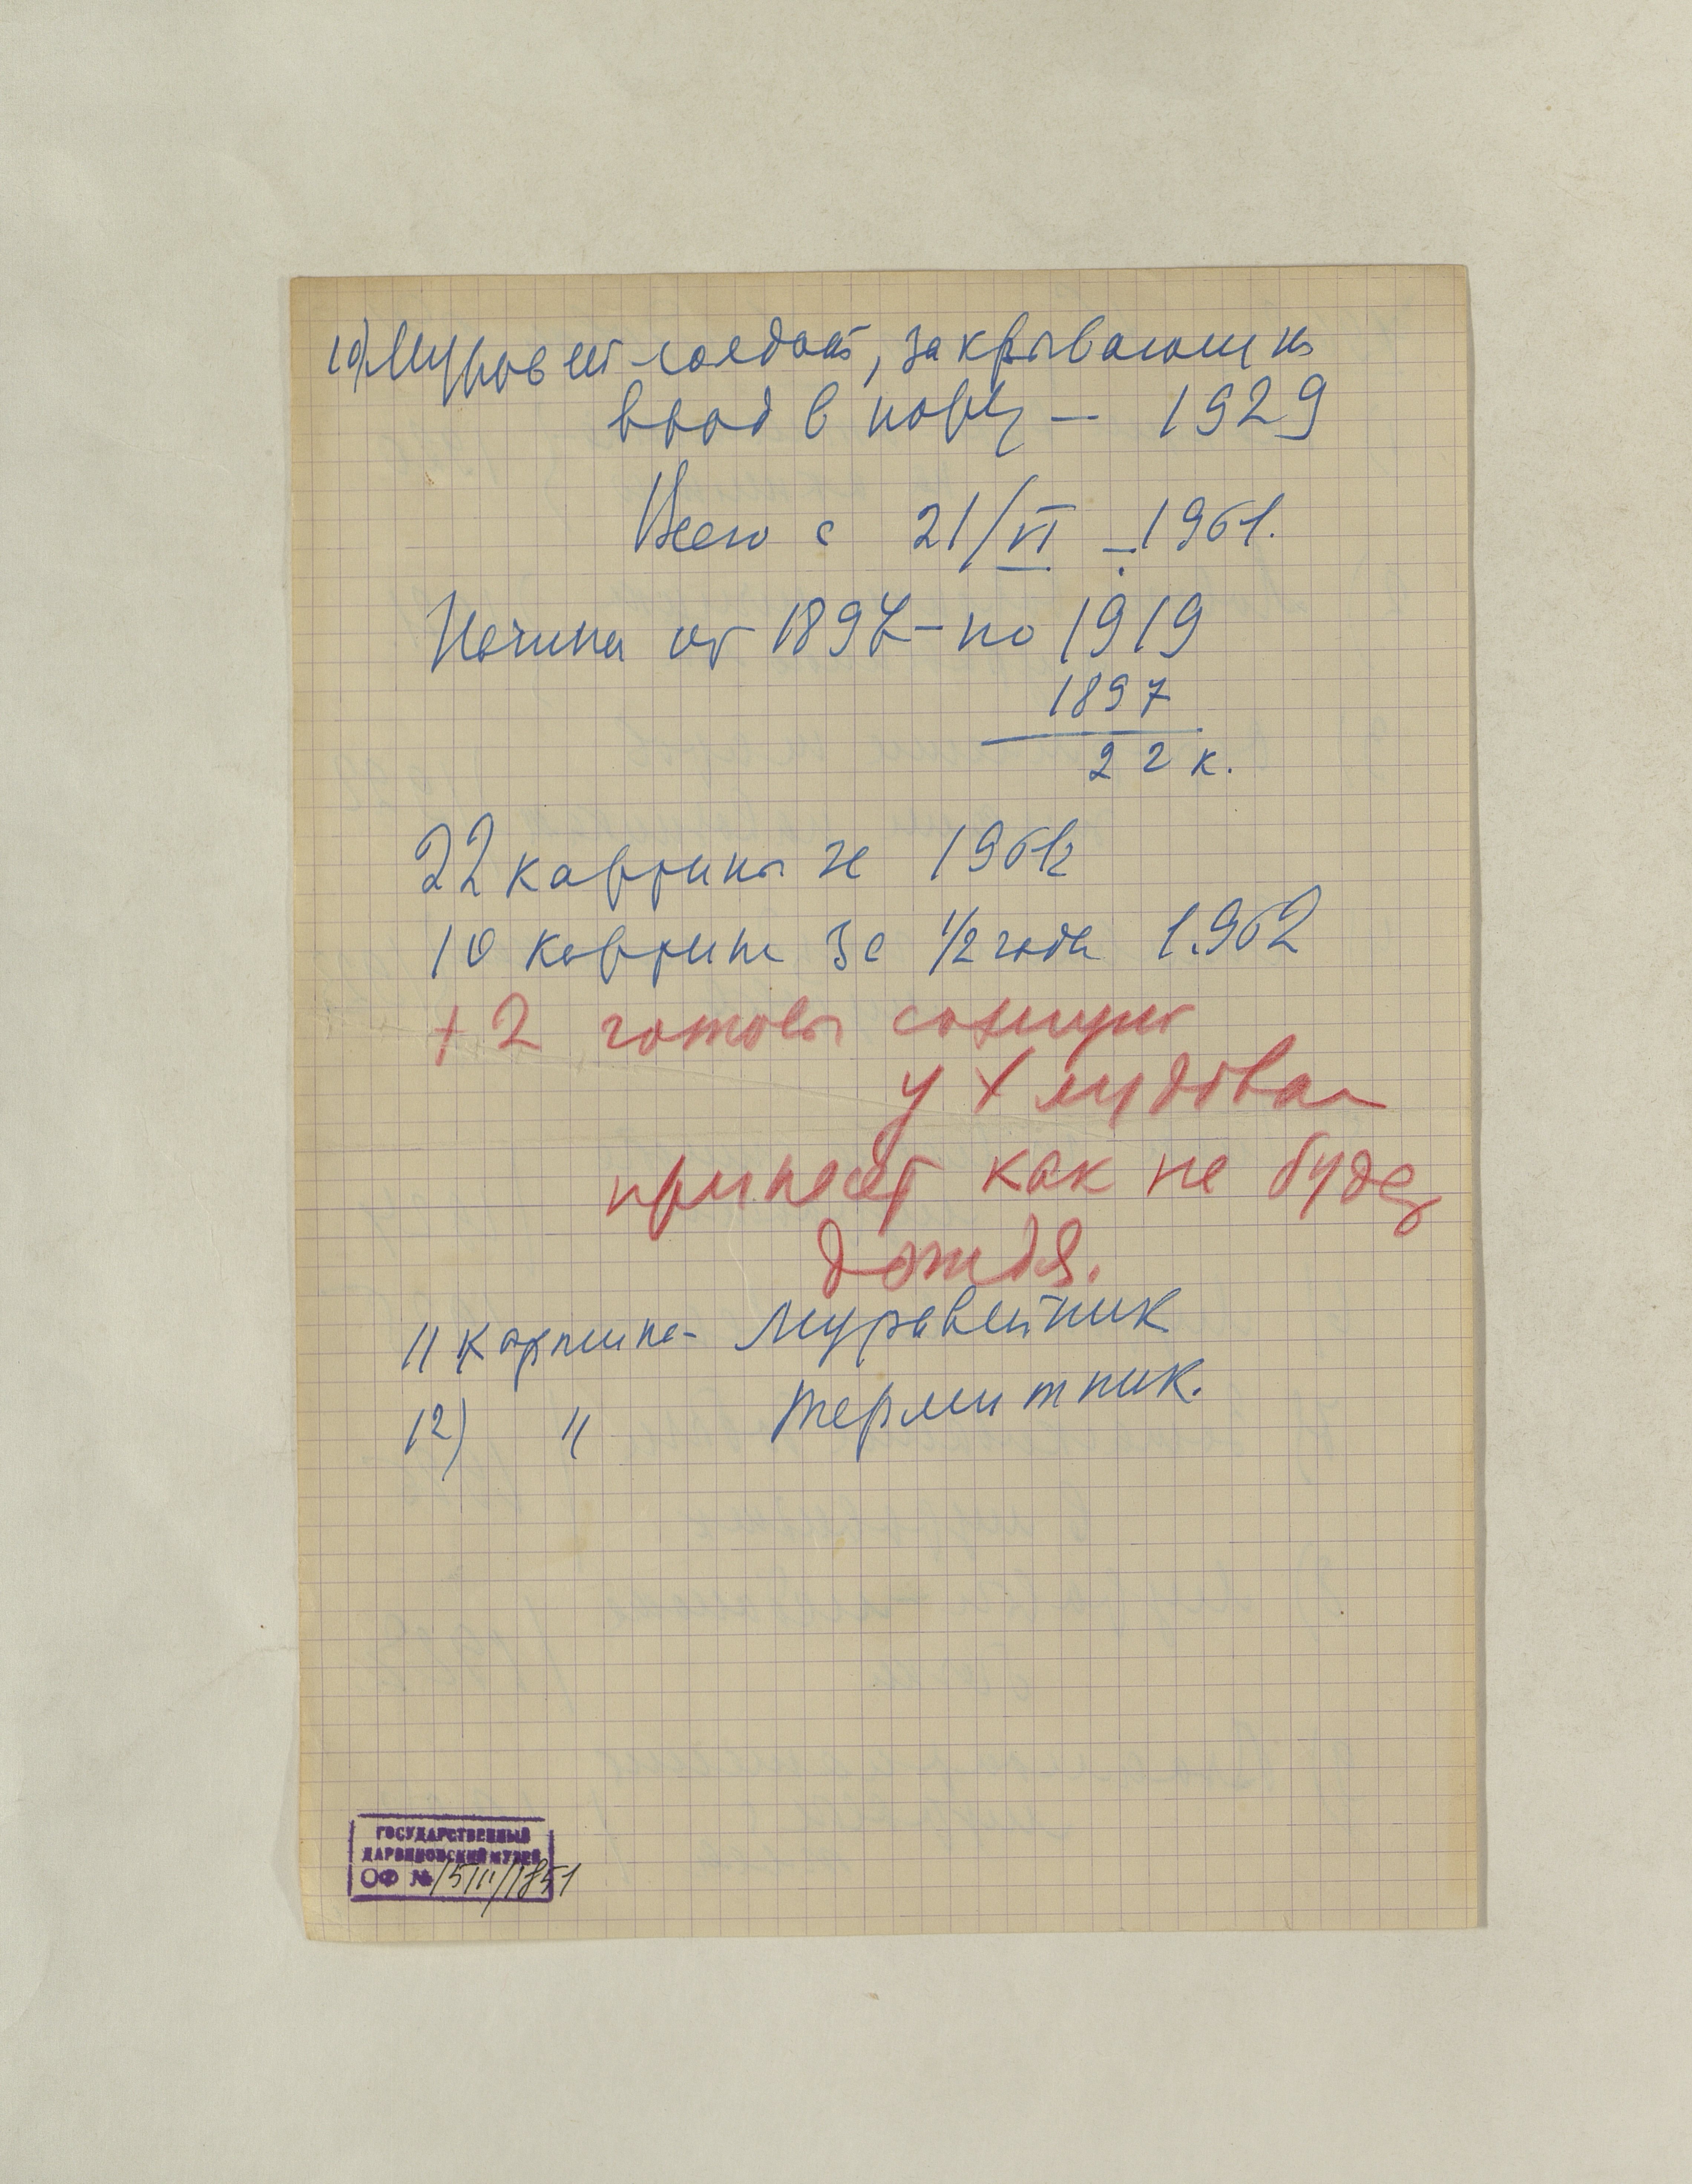 10) Муравей-солдат, закрывающий
вход в нору — 1929
Всего с 21/VI – 1961.
Начиная от 1897 – по 1919
1897
22 к.
22 картины за 1961г
10 картин за 1/2 года 1.962
+ 2 готовы сохнут
у Хлудова
принесет как не будет
дождя.
11 картина - Муравейник
12) " Термитник.
ГОСУДАРСТВЕННЫЙ
ДАРВИНОВСКИЙ МУЗЕЙ
ОФ №